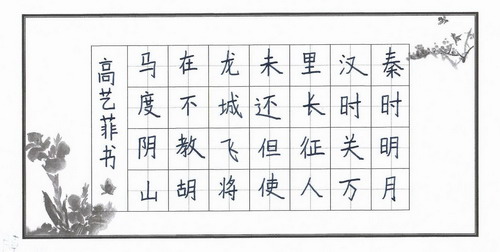 秦时明月
汉时关万
里长征人
未还但使
龙城飞将
在不教胡
马度阴山
高艺菲书